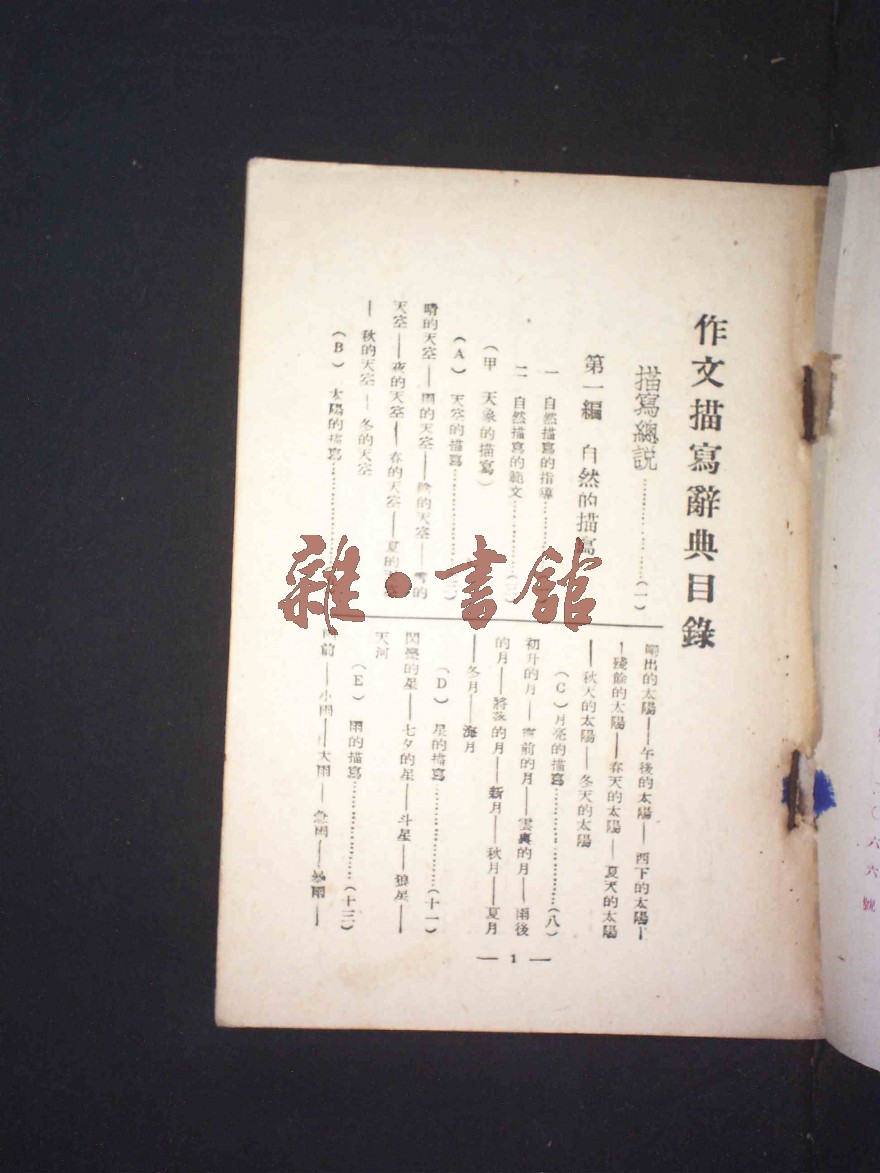 作文描寫辭典目錄
描寫總說………………(一)
第一編 自然的描寫
一 自然描寫的指導
二 自然描寫的範文
(甲 天象的描寫)
(A) 天空的描寫
晴的天空——雨的天空——的天空——雪的
天空——夜的天空——春的天空——夏的天空
——秋的天空——冬的天空
(B) 太陽的描寫
出的太陽——午後的太陽——西下的太陽—
—殘餘的太陽——春天的太陽——夏天的太陽
——秋天的太陽——冬天的太陽
(C)月亮的描寫………………(八)
初升的月——雨前的月——雲裏的月——雨後
的月——將落的月——新月——秋月——夏月
——冬月——海月
(D) 星的描寫………………(十一)
閃爍的星——七夕的星——斗星——狼星——
天河
(E) 雨的描寫………………(十三)
雨前——小雨——大雨——急雨——暴雨——
— 1 —
雜·書館
〇六六號